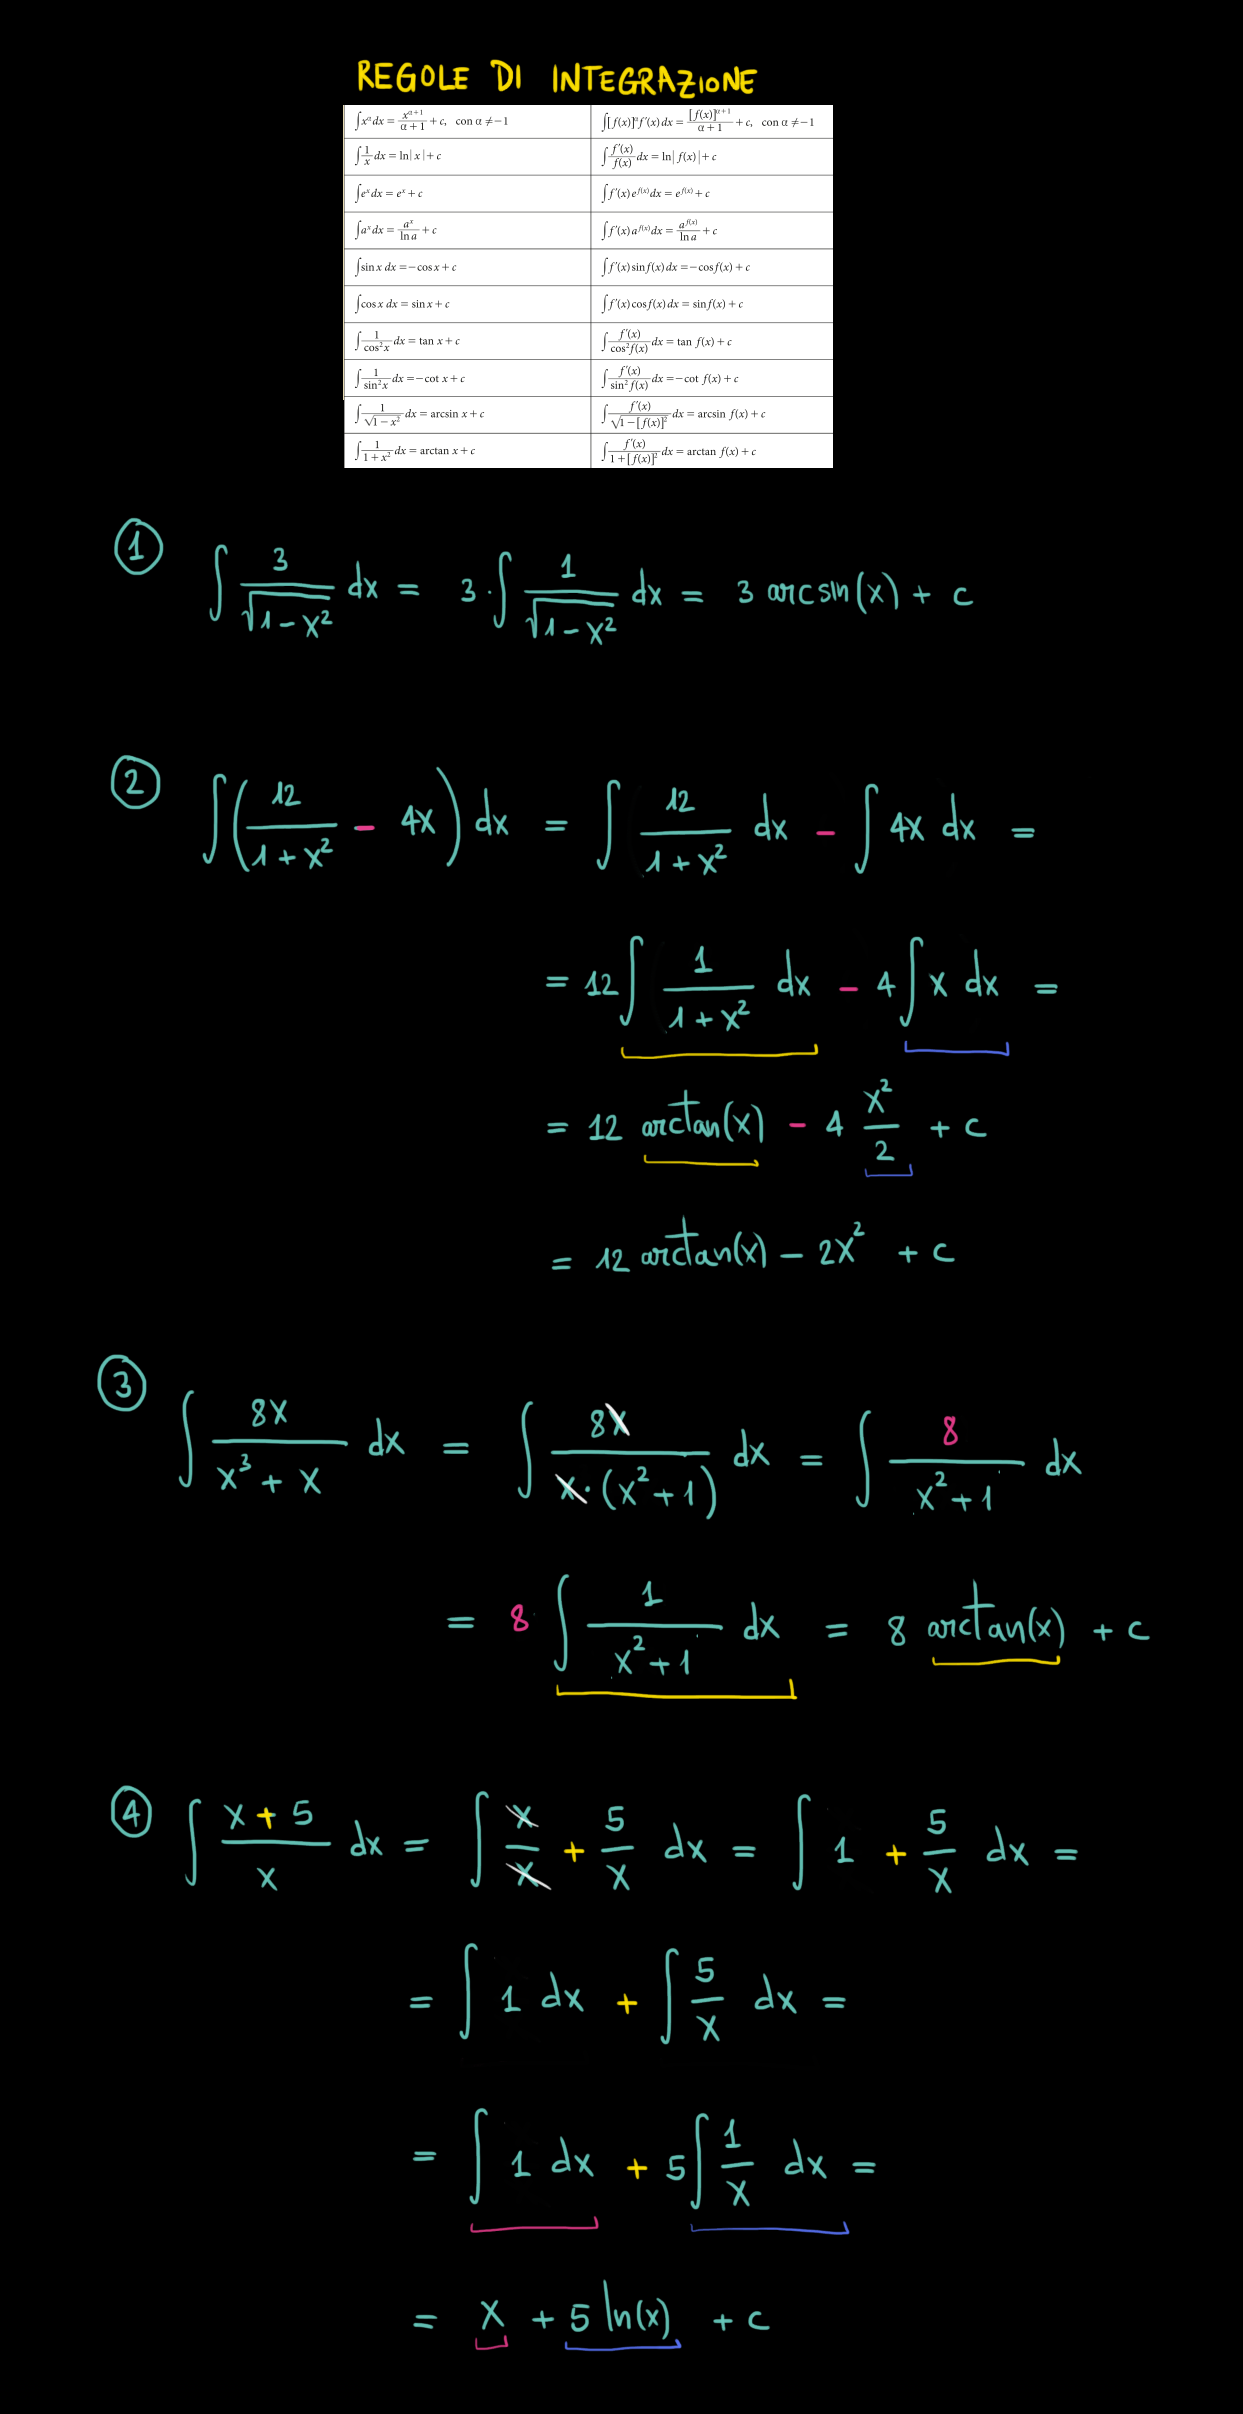 REGOLE DI INTEGRAZIONE
∫x^α dx = x^(α+1)/(α+1) + c, con α ≠ −1
∫[f(x)]^α f′(x) dx = [f(x)]^(α+1)/(α+1) + c, con α ≠ −1
∫1/x dx = ln|x| + c
∫f′(x)/f(x) dx = ln|f(x)| + c
∫e^x dx = e^x + c
∫f′(x) e^f(x) dx = e^f(x) + c
∫a^x dx = a^x/ln a + c
∫f′(x) a^f(x) dx = a^f(x)/ln a + c
∫sin x dx = −cos x + c
∫f′(x) sin f(x) dx = −cos f(x) + c
∫cos x dx = sin x + c
∫f′(x) cos f(x) dx = sin f(x) + c
∫1/cos² x dx = tan x + c
∫f′(x)/cos² f(x) dx = tan f(x) + c
∫1/sin² x dx = −cot x + c
∫f′(x)/sin² f(x) dx = −cot f(x) + c
∫1/√(1 − x²) dx = arcsin x + c
∫f′(x)/√(1 − [f(x)]²) dx = arcsin f(x) + c
∫1/(1 + x²) dx = arctan x + c
∫f′(x)/(1 + [f(x)]²) dx = arctan f(x) + c
① ∫ 3/√(1 − x²) dx = 3 · ∫ 1/√(1 − x²) dx = 3 arcsin(x) + c
② ∫(12/(1 + x²) − 4x) dx = ∫ 12/(1 + x²) dx − ∫ 4x dx =
= 12 ∫ 1/(1 + x²) dx − 4 ∫ x dx =
= 12 arctan(x) − 4 x²/2 + c
= 12 arctan(x) − 2x² + c
③ ∫ 8x/(x³ + x) dx = ∫ 8x/(x · (x² + 1)) dx = ∫ 8/(x² + 1) dx
= 8 ∫ 1/(x² + 1) dx = 8 arctan(x) + c
④ ∫ (x + 5)/x dx = ∫ x/x + 5/x dx = ∫ 1 + 5/x dx =
= ∫ 1 dx + ∫ 5/x dx =
= ∫ 1 dx + 5 ∫ 1/x dx =
= x + 5 ln(x) + c